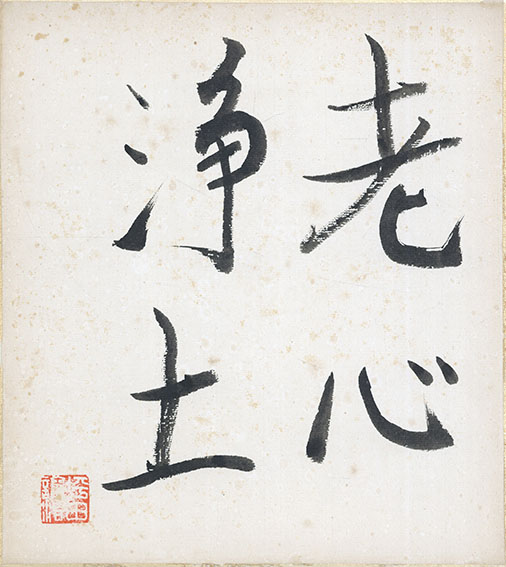 老心
浄土